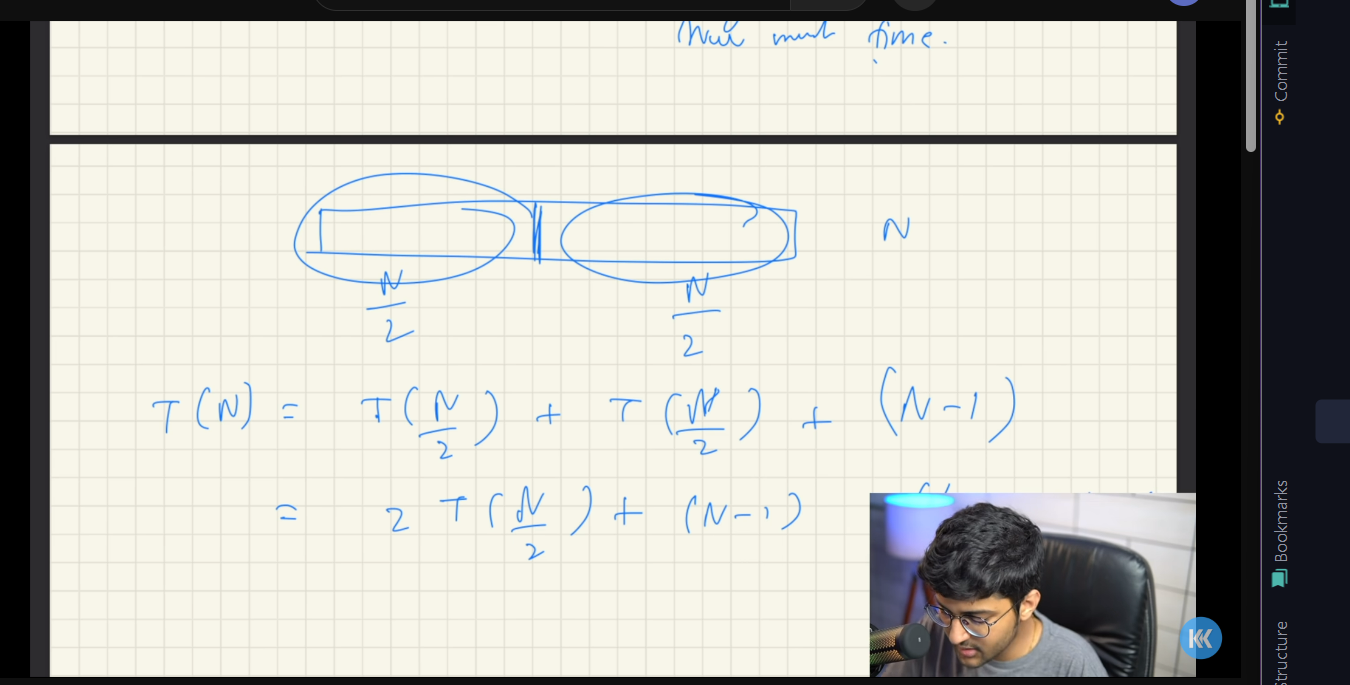 must time.
N
N/2 N/2
T(N) = T(N/2) + T(N/2) + (N-1)
= 2 T(N/2) + (N-1)
Commit
Bookmarks
tructure